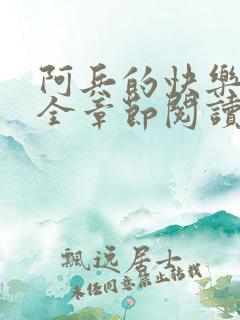 阿兵的快樂
全章節閱讀
飄逸居士
未经同意禁止转载